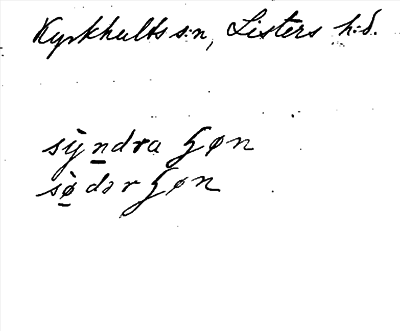 Kyrkhults s:n, Listers h:d.
sỳn̲dra ʃøn
sø̲̀dər ʃøn